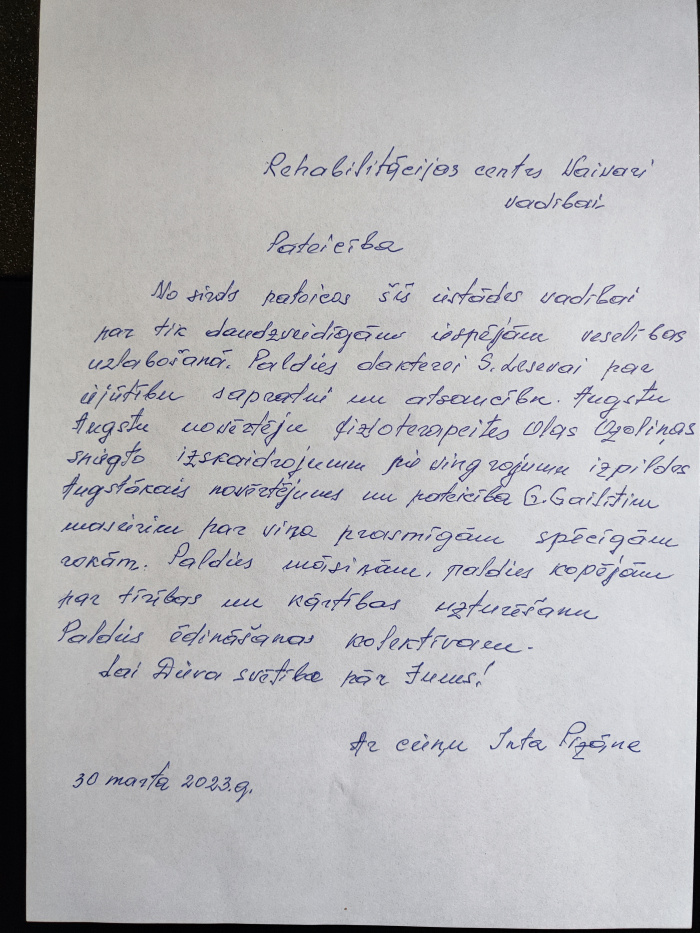 Rehabilitācijas centrs Vaivari
vadībai
Pateicība
No sirds pateicos šīs iestādes vadībai
par tik daudzveidīgām iespējām veselības
uzlabošanā. Paldies dakterei S. Lesevai par
iejūtību sapratni un atsaucību. Augstu
Augstu novērtēju fizioterapeites Olgas Ozoliņas
sniegto izskaidrojumu pie vingrojumu izpildes
Augstākais novērtējums un pateicība G. Gailītim
masierim par viņa prasmīgām spēcīgām
rokām. Paldies māsiņām, paldies kopējām
par tīrības un kārtības uzturēšanu
Paldies ēdināšanas kolektīvam.
Lai Dieva svētība pār Jums!
Ar cieņu Inta
30 martā 2023.g.